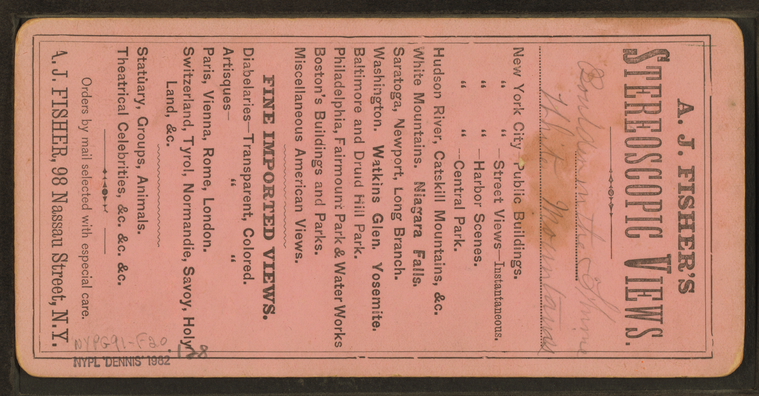 A. J. FISHER'S
STEREOSCOPIC VIEWS.
in the
White Mountains
New York City Public Buildings.
" " Street Views—Instantaneous.
" " Harbor Scenes.
" " Central Park.
Hudson River, Catskill Mountains, &c.
White Mountains. Niagara Falls.
Saratoga, Newport, Long Branch.
Washington. Watkins Glen. Yosemite.
Baltimore and Druid Hill Park.
Philadelphia, Fairmount Park & Water Works
Boston's Buildings and Parks.
Miscellaneous American Views.
FINE IMPORTED VIEWS.
Diabelaries—Transparent, Colored.
Artisques— " "
Paris, Vienna, Rome, London.
Switzerland, Tyrol, Normandie, Savoy, Holy
Land, &c.
Statuary, Groups, Animals.
Theatrical Celebrities, &c. &c. &c.
Orders by mail selected with especial care.
A. J. FISHER, 98 Nassau Street, N. Y.
128
NYPG91-F30
NYPL "DENNIS" 1982